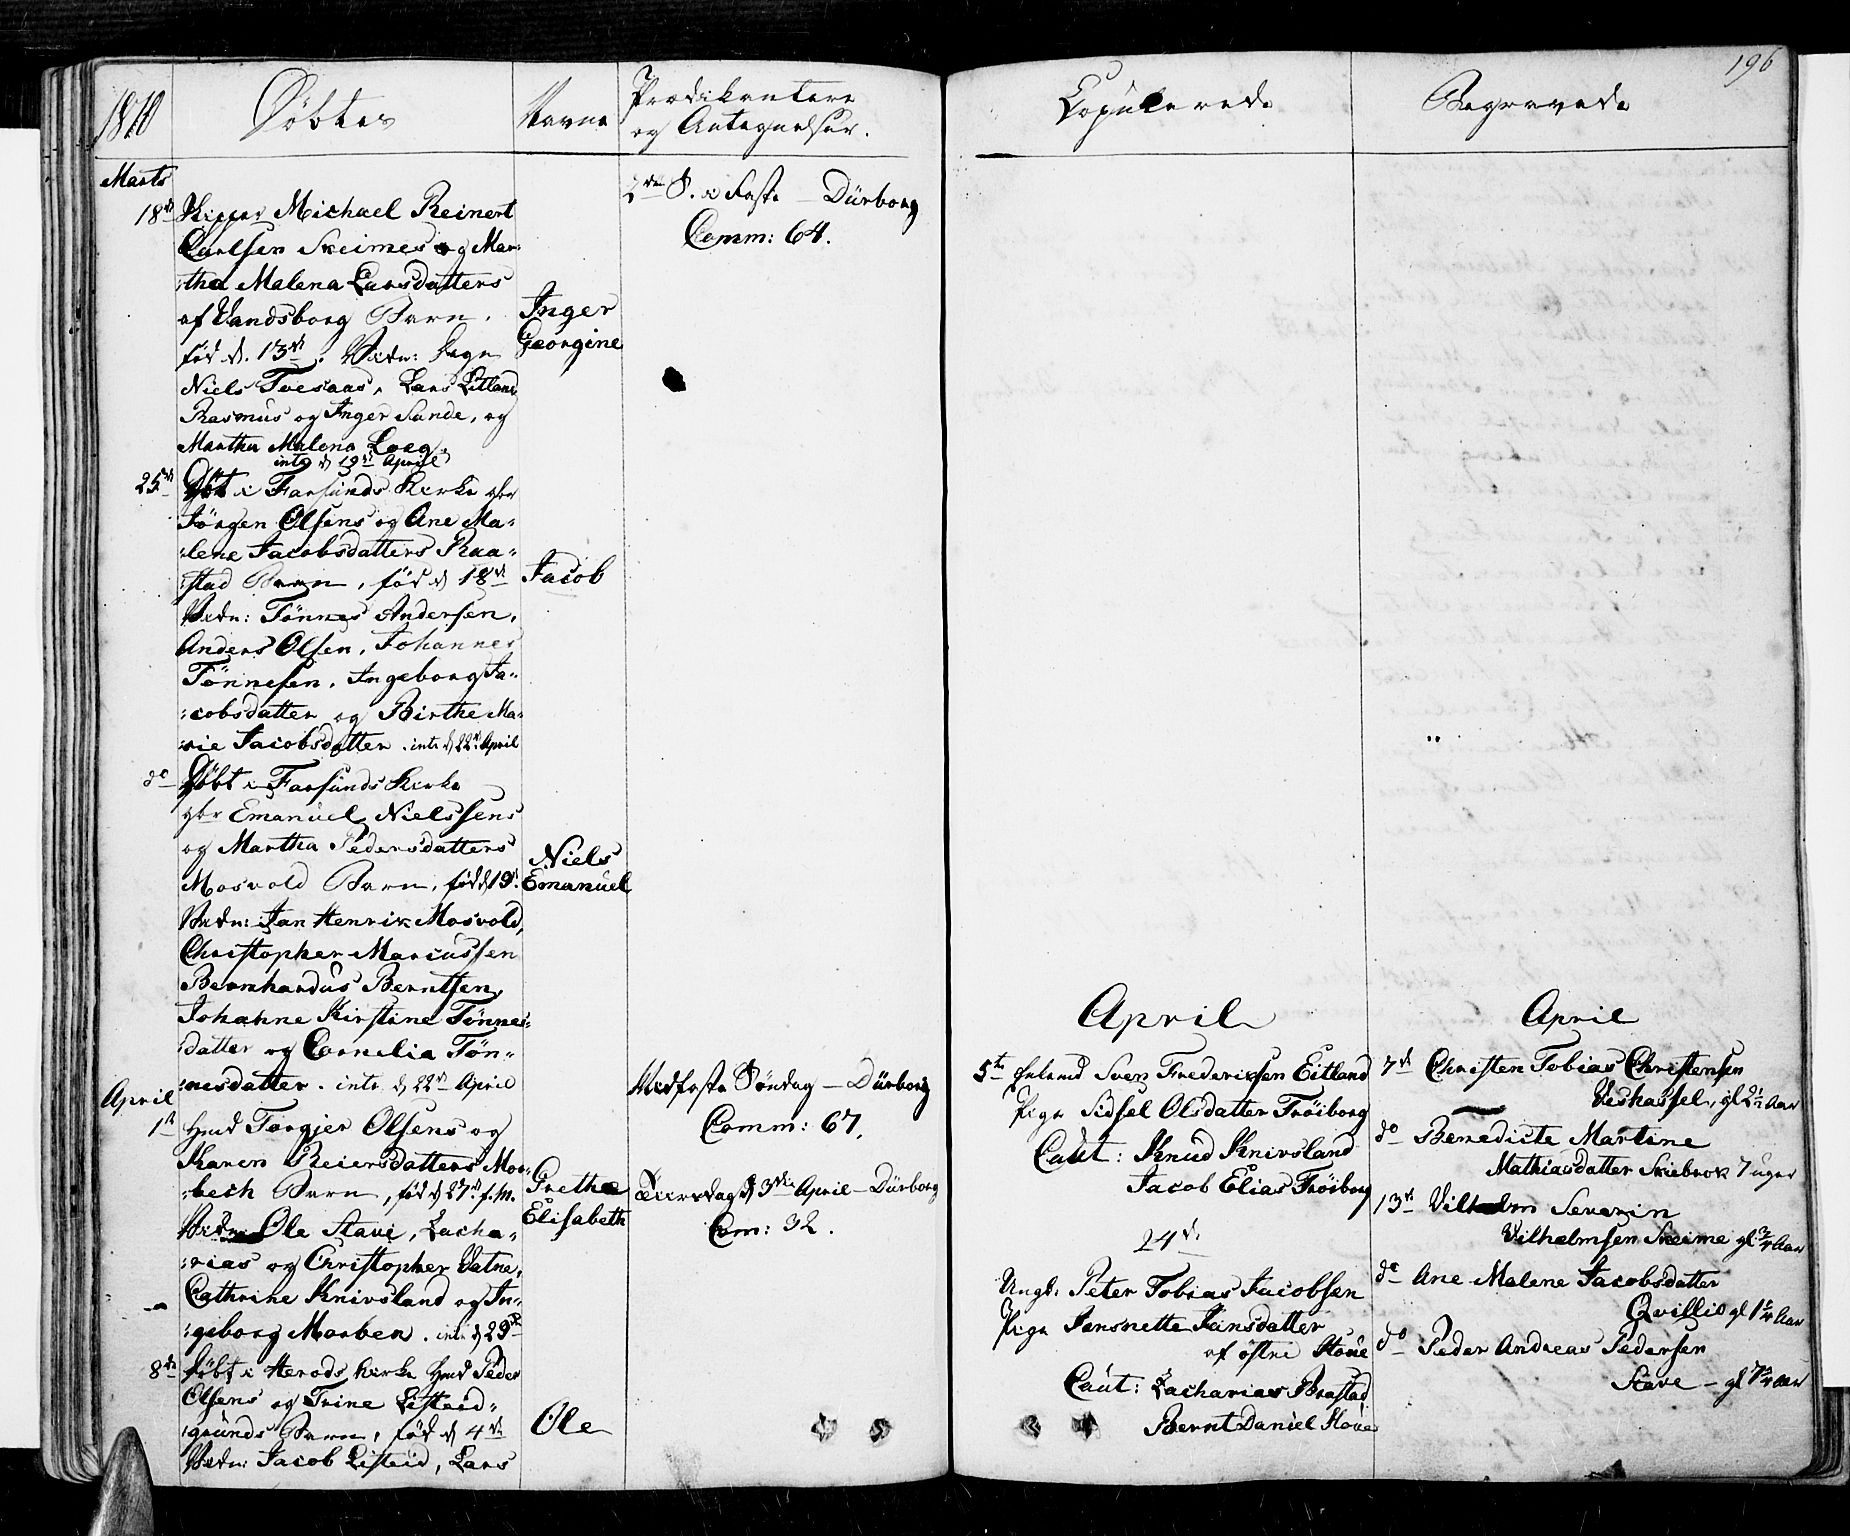 196
1810
Döbtes
Navne
Prædikantere
og Antegnelser.
Copulerede
Begravede
Marts
18de Skipper Michael Reinert
Carlsen Skeimes og Mar:
:tha Malena Larsdatters
af Vandsborg Barn.
Inger
Georgine
föd d. 13de. Vidn:
Niels Tvesaas, Lars Litland
Rasmus og Inger Sunde, og
Martha Malena Loeg.
intr d 19de April
2den S. i Faste – Dürborg
Comm: 64.
25de Döbt i Farsunds Kirke
Jörgen Olsens og Ane Ma-
:lene Jacobsdatters Raa-
:stad Barn, föd d 18de
Jacob
Vidn: Tönnes Andersen,
Anders Olsen, Johannes
Tönnesen, Ingeborg Ja-
:cobsdatter og Birthe Ma-
:rie Jacobsdatter. intr d 22de April
do Döbt i Farsunds Kirke
Emanuel Nielssens
og Martha Pedersdatters
Mosvold Barn, föd d 19de
Niels
Emanuel
Vidn: Jan Henrik Mosvold,
Christopher Marcussen
Bernhardus Berntsen,
Johanne Kirstine Tönnes-
:datter og Cornelia Tön-
:nesdatter. intr d 22de April
April
1ste Hmd Torgier Olsens og
Karen Reiersdatters Mor-
:bech Barn, föd d 27de f.M.
Grethe
Elisabeth
Vidn: Ole Stave, Zacha-
:rias og Christopher Vatne,
Cathrine Knivsland og In-
:geborg Marben. intr d 29de
Midfaste Söndag – Dürborg
Comm: 67.
Tiirsdag d 3die April – Dürborg
Com: 32.
8de Döbt i Herods Kirke Hmd Peder
Olsens og Trine Listeid-
:grunds Barn, föd d 4de
Ole
Vidn: Jacob Listeid, Lars
April
5te Sven Frederiksen Eitland
Pige Sidsel Olsdatter Tröiborg
Caut: Knud Knivsland
Jacob Elias Tröiborg
24de
Ungk: Peter Tobias Jacobsen
Pige Jensnette Jansdatter
af östre Houe
Caut: Zacharias Brastad
Bernt Daniel Houe
April
7de Christen Tobias Christensen
Veshassel, gl 2½ Aar
do Benedicte Martine
Mathiasdatter Skiebrok 7 uger
13de Vilhelm Severin
Vilhelmsen Skeime gl ¾ Aar
do Ane Malene Jacobsdatter
Qvillio gl Aar
do Peder Andreas Pedersen
Stave – gl Aar